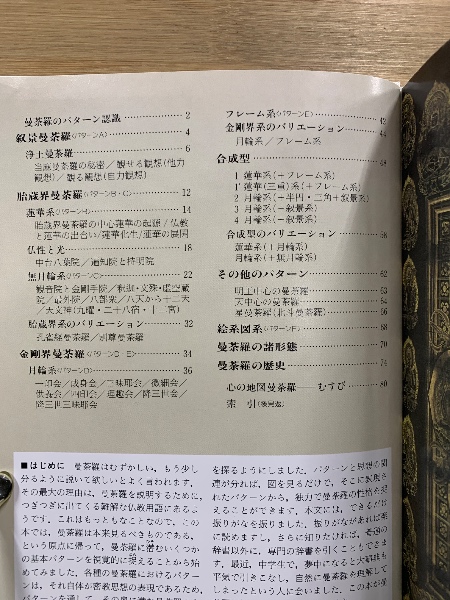 曼荼羅のパターン認識 2
叙景曼荼羅〈パターンA〉 4
浄土曼荼羅 6
当麻曼荼羅の秘密／観せる観想(他力
観想)／観る観想(自力観想)
胎蔵界曼荼羅〈パターンB・C〉 12
蓮華系〈パターンB〉 14
胎蔵界曼荼羅の中心蓮華の起源／仏教
と蓮華の出合い／蓮華化生／蓮華の展開
仏性と光 18
中台八葉院／遍知院と持明院
無月輪系〈パターンC〉 22
観音院と金剛手院／釈迦・文殊・虚空蔵
院／最外院／八部衆／八天から十二天
／大文神(九曜・二十八宿・十二宮)
胎蔵界系のバリエーション 32
孔雀経曼荼羅／別尊曼荼羅
金剛界曼荼羅〈パターンD・E〉 34
月輪系〈パターンD〉 36
一印会／成身会／三昧耶会／微細会／
供養会／四印会／理趣会／降三世会／
降三世三昧耶会
フレーム系〈パターンE〉 42
金剛界系のバリエーション 44
月輪系／フレーム系
合成型 48
1 蓮華系(＋フレーム系)
1' 蓮華(三重)系(＋フレーム系)
2 月輪系(＋半円・三角＋叙景系)
3 月輪系(＋叙景系)
4 月輪系(＋叙景系)
合成型のバリエーション 58
蓮華系(＋月輪系)
月輪系(＋無月輪系)
その他のパターン 62
明王中心の曼荼羅 63
天中心の曼荼羅 64
星曼荼羅(北斗曼荼羅) 66
絵系図系〈パターンF〉 68
曼荼羅の諸形態 70
曼荼羅の歴史 74
心の地図曼荼羅——むすび 80
索 引(後見返)
■はじめに 曼荼羅はむずかしい，もう少し
分るように説いて欲しいとよく言われます．
その最大の理由は，曼荼羅を説明するために，
つぎつぎに出てくる難解な仏教用語にあるよ
うです．これはもっともなことなので，この
本では，曼荼羅は本来見るべきものである，
という原点に帰って，曼荼羅に潜むいくつか
の基本パターンを視覚的に捉えることから始
めてみました．各種の曼荼羅におけるパター
ンは，それ自体が密教思想の表現であるため，
を探るようにしました．パターンと思想の関
連が分れば，図を見るだけで，そこに表現さ
れたパターンから，独力で曼荼羅の性格を捉
えることができます．本文には，できるだけ
振りがなを振りました．振りがながあれば楽
に読めますし，さらに知りたければ，普通の
辞書以外に，専門の辞書を引くこともできま
す．最近，中学生で，夢中になると大辞典も
平気で引きこなし，自然に曼荼羅を理解して
しまったという人に会いました．この本が